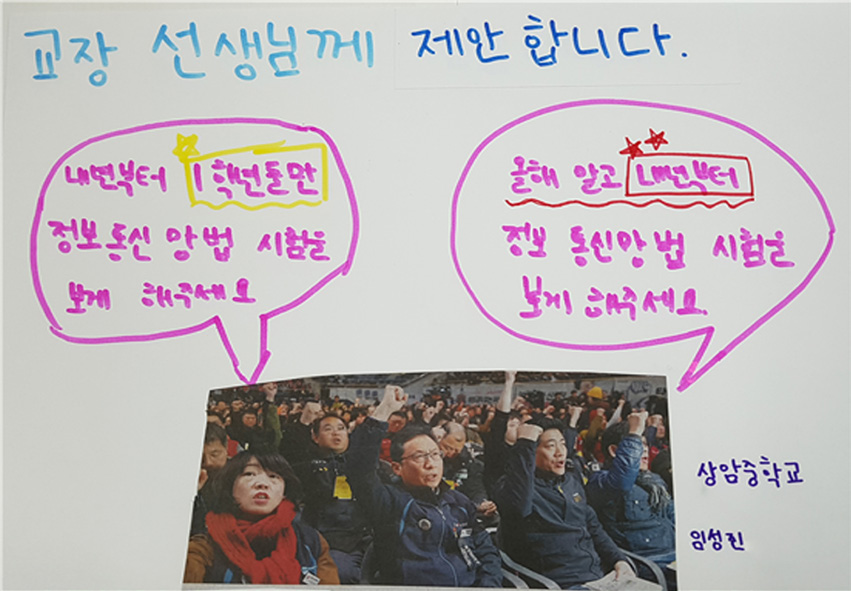 교장 선생님께 제안합니다.
내년부터 1학년들만
정보통신망법 시험을
보게 해주세요
올해 말고 내년부터
정보통신망법 시험을
보게 해주세요.
상암중학교
임성진